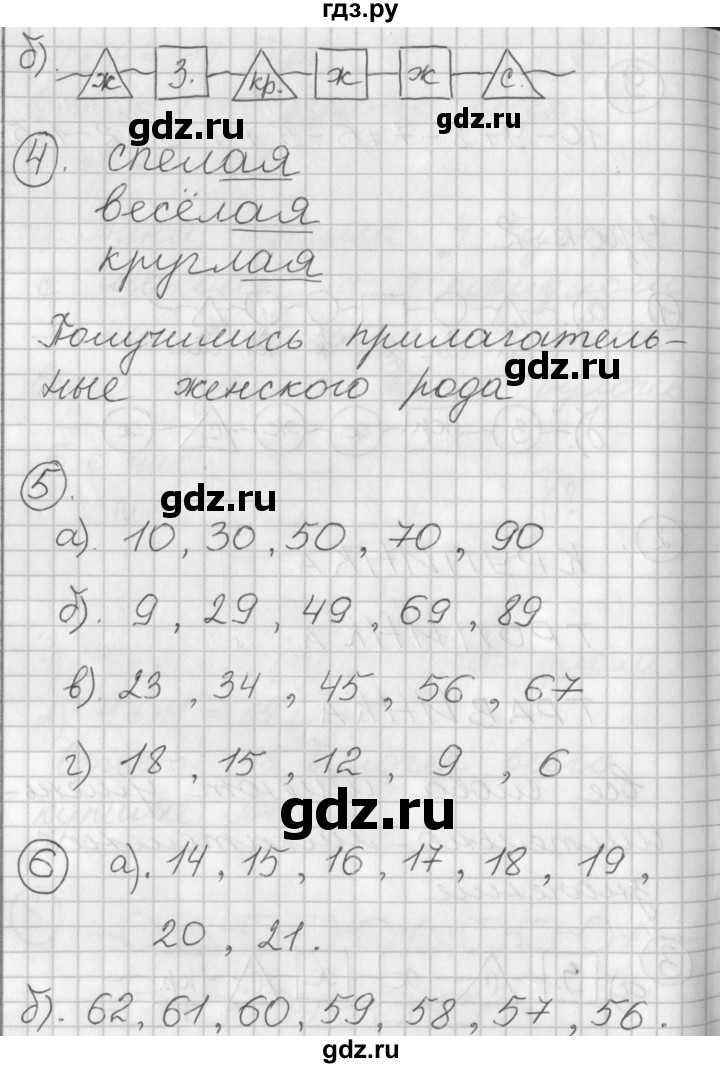 гдз.ру
б). ж з. кр. ж ж с.
gdz.ru gdz.ru
4. спелая
весёлая
круглая
Получились прилагатель-
gdz.ru
ные женского рода
5.
gdz.ru
а). 10, 30, 50, 70, 90
б). 9, 29, 49, 69, 89
в) 23, 34, 45, 56, 67
г) 18, 15, 12, 9, 6
gdz.ru
6 а). 14, 15, 16, 17, 18, 19,
20, 21.
б). 62, 61, 60, 59, 58, 57, 56.
gdz.ru